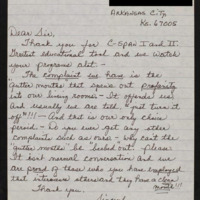 Arkansas City,
Ks. 67005
Dear Sir,
Thank you for C-SPAN I and II.
Greatest educational tool and we watch
your programs alot -
The complaint we have is the
gutter mouths that spew out profanity
into our living rooms - It offends us!!
And usually we are told "just turn it
off"!!! - And that is our only choice
period. - Do you ever get any other
complaints such as mine - why can't the
"gutter mouths" be beeped out please.
It isnt normal conversation and we
are proud of those who you have employed
that interviews others and they have a clean
mouth!!!
Thank you.